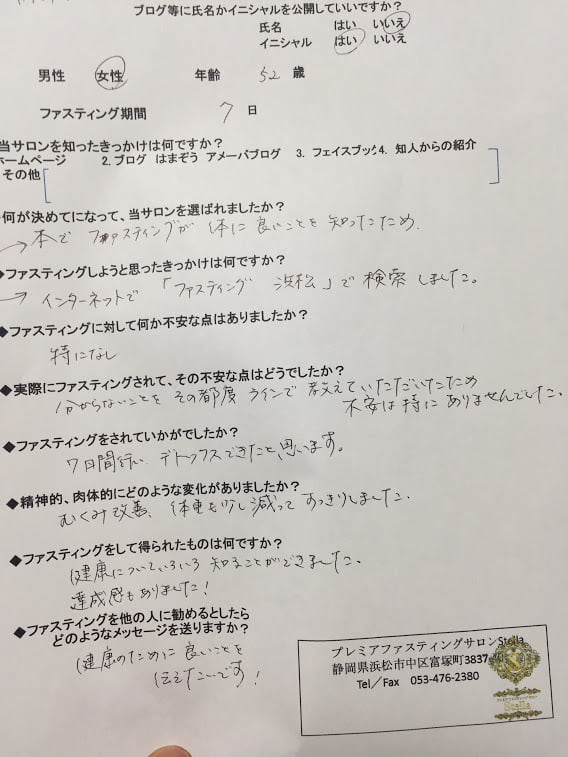 ブログ等に氏名かイニシャルを公開していいですか?
氏名 はい いいえ
イニシャル はい いいえ
男性 女性 年齢 52 歳
ファスティング期間 7 日
当サロンを知ったきっかけは何ですか?
ホームページ 2.ブログ はまぞう アメーバブログ 3. フェイスブック 4. 知人からの紹介
その他
何が決めてになって、当サロンを選ばれましたか?
→ 本で ファスティングが 体に良いことを知ったため.
◆ファスティングしようと思ったきっかけは何ですか?
→ インターネットで 「ファスティング 浜松」で検索しました。
◆ファスティングに対して何か不安な点はありましたか?
特になし
◆実際にファスティングされて、その不安な点はどうでしたか?
分からないことを その都度 ラインで 教えていただいたため
不安は特にありませんでした.
◆ファスティングをされていかがでしたか?
7日間行い、デトックスできたと思います。
◆精神的、肉体的にどのような変化がありましたか?
むくみ改善、体重も少し減って すっきりしました.
◆ファスティングをして得られたものは何ですか?
健康についていろいろ 知ることができました.
達成感もありました!
◆ファスティングを他の人に勧めるとしたら
どのようなメッセージを送りますか?
健康のために良いことを
伝えたいです!
プレミアファスティングサロンStella
静岡県浜松市中区富塚町3837
Tel/Fax 053-476-2380
Stella